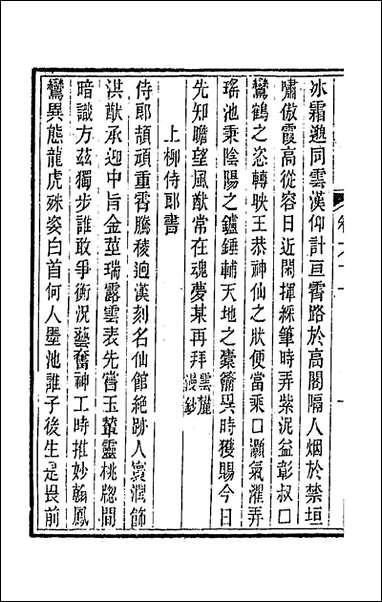 冰霜邈同雲漢仰計亘霄路於高閣隔人烟於禁垣
嘯傲霞高從容日近閑揮綵筆時弄紫泥益彰叔口
鸞鶴之恣轉映王恭神仙之狀便當乘口灝氣濯弄
瑤池秉陰陽之鑪錘輔天地之橐籥異時獲賜今日
先知瞻望風猷常在魂夢某再拜 雲麓漫鈔
上柳侍郎書
侍郎頡頏重香騰稜逈漢刻名仙館絶跡人寰潤飾
洪猷承迎中旨金莖瑞露雲表先嘗玉蕤靈桃牕間
暗識方兹獨步誰敢爭衡况藝奮神工時推妙翰鳳
鸞異態龍虎殊姿白首何人墨池誰子後生是畏前